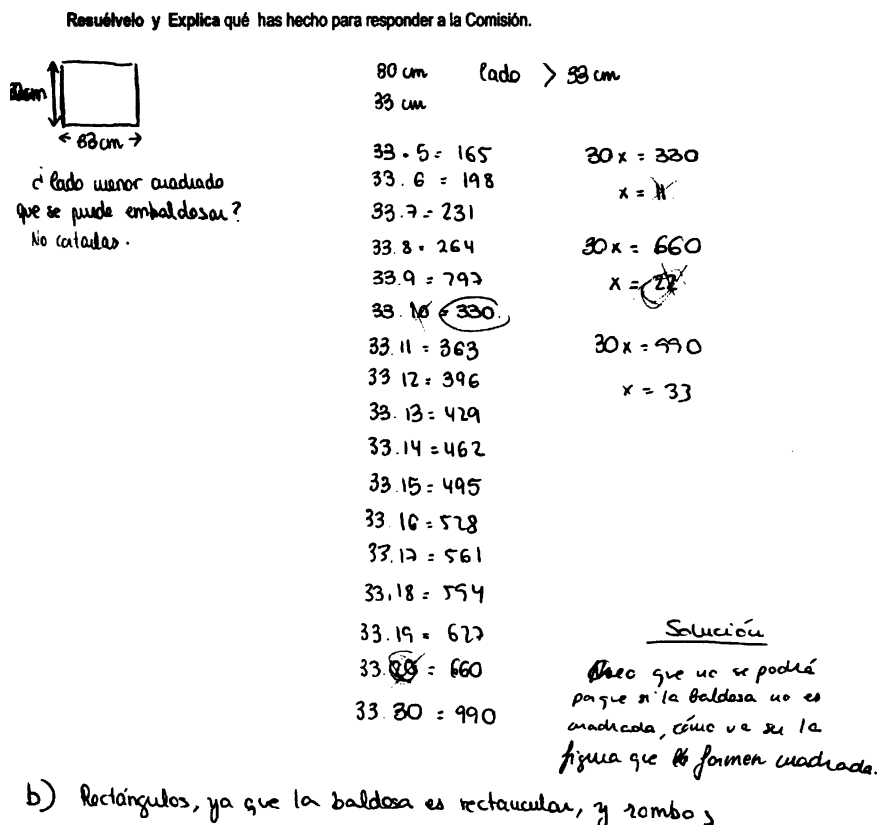 Resuélvelo y Explica qué has hecho para responder a la Comisión.
30cm
33 cm
¿ lado menor cuadrado
que se puede embaldosar?
No cortadas.
80 cm lado > 33 cm
33 cm
33 . 5 = 165
33 . 6 = 198
33 . 7 = 231
33. 8 = 264
33.9 = 297
33 . 10 = 330
33. 11 = 363
33 12 = 396
33. 13 = 429
33. 14 = 462
33. 15 = 495
33. 16 = 528
33. 17 = 561
33. 18 = 594
33. 19 = 627
33. 20 = 660
33. 30 = 990
30x = 330
x = 11
30x = 660
x = 22
30x = 990
x = 33
Solución
Creo que no se podrá
porque si la baldosa no es
cuadrada, cómo va ser la
figura que formen cuadrada.
b) Rectángulos, ya que la baldosa es rectancular, y rombos